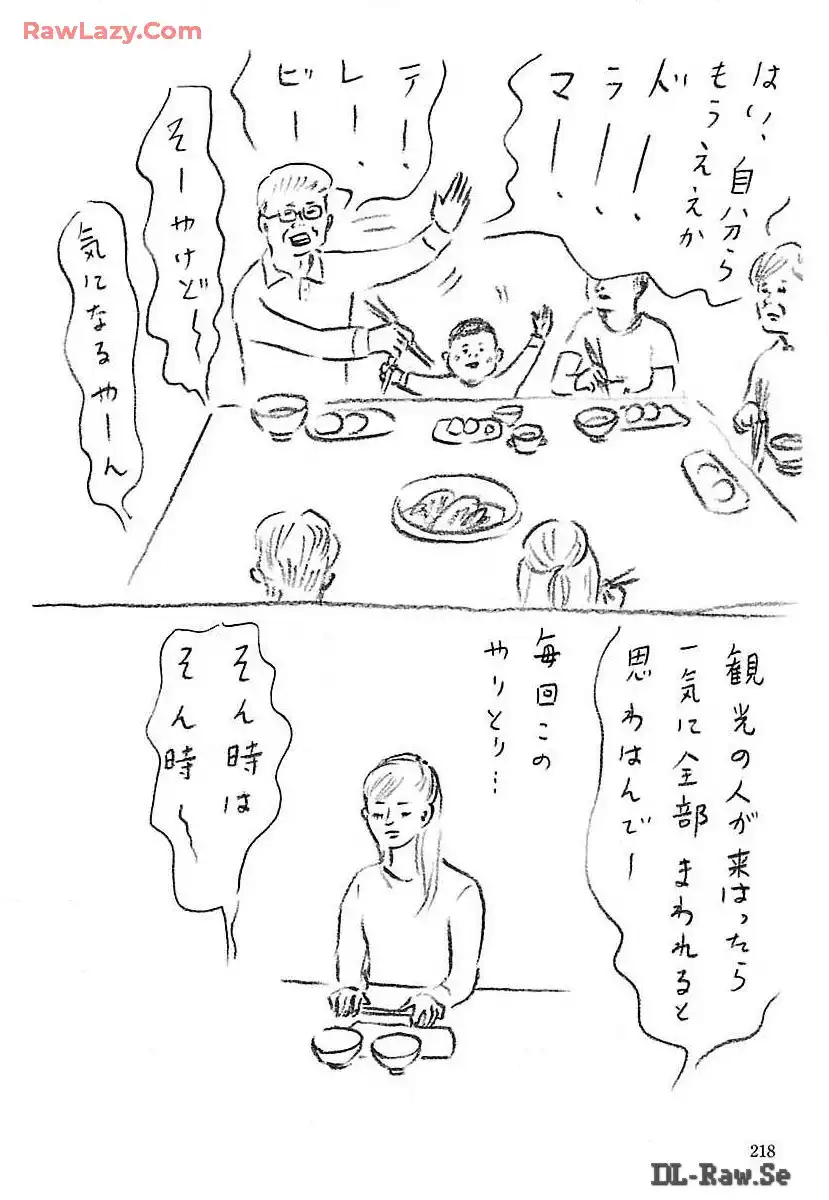 RawLazy.Com
はい、自分ら
もうええか
ドー!
ラー!
マー!
テー!
レー!
ビー
そーやけどー
気になるやーん
観光の人が来はったら
一気に全部まわれると
思わはんでー
毎回この
やりとり…
そん時は
そん時ー
218
DL-Raw.Se